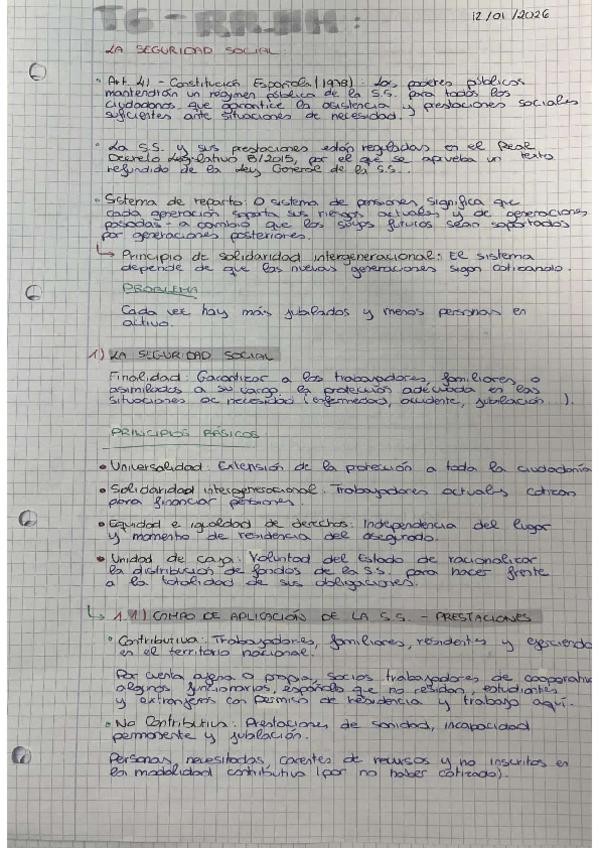 T6 - RR.HH:
12/01/2026
LA SEGURIDAD SOCIAL:
· Art. 41 - Constitución Española (1978): Los poderes públicos
mantendrán un régimen público de la S.S. para todos los
ciudadanos que garantice la asistencia y prestaciones sociales
suficientes ante situaciones de necesidad.
· La S.S. y sus prestaciones están reguladas en el Real
Decreto Legislativo 8/2015, por el que se aprueba un texto
refundido de la Ley General de la S.S..
· Sistema de reparto: O sistema de pensiones, significa que
cada generación soporta sus riesgos actuales y de generaciones
pasadas - a cambio que los suyos futuros sean soportados
por generaciones posteriores.
↳ Principio de solidaridad intergeneracional: El sistema
depende de que las nuevas generaciones sigan cotizando.
PROBLEMA
Cada vez hay más jubilados y menos personas en
activo.
1) LA SEGURIDAD SOCIAL
Finalidad: Garantizar a los trabajadores, familiares o
asimilados a su cargo la protección adecuada en las
situaciones de necesidad (enfermedad, accidente, jubilación...).
PRINCIPIOS BÁSICOS
• Universalidad: Extensión de la protección a toda la ciudadanía
• Solidaridad intergeneracional: Trabajadores actuales cotizan
para financiar pensiones.
• Equidad e igualdad de derechos: Independencia del lugar
y momento de residencia del asegurado.
• Unidad de caja: Voluntad del Estado de racionalizar
la distribución de fondos de la S.S. para hacer frente
a la totalidad de sus obligaciones.
↳ 1.1) CAMPO DE APLICACIÓN DE LA S.S. - PRESTACIONES
· Contributiva: Trabajadores, familiares, residentes y ejerciendo
en el territorio nacional.
Por cuenta ajena o propia, socios trabajadores de cooperativa
algunos funcionarios, españoles que no residan, estudiantes
y extranjeros con permiso de residencia y trabajo aquí.
· No Contributiva: Prestaciones de sanidad, incapacidad
permanente y jubilación.
Personas necesitadas, carentes de recursos y no inscritos en
la modalidad contributiva (por no haber cotizado).